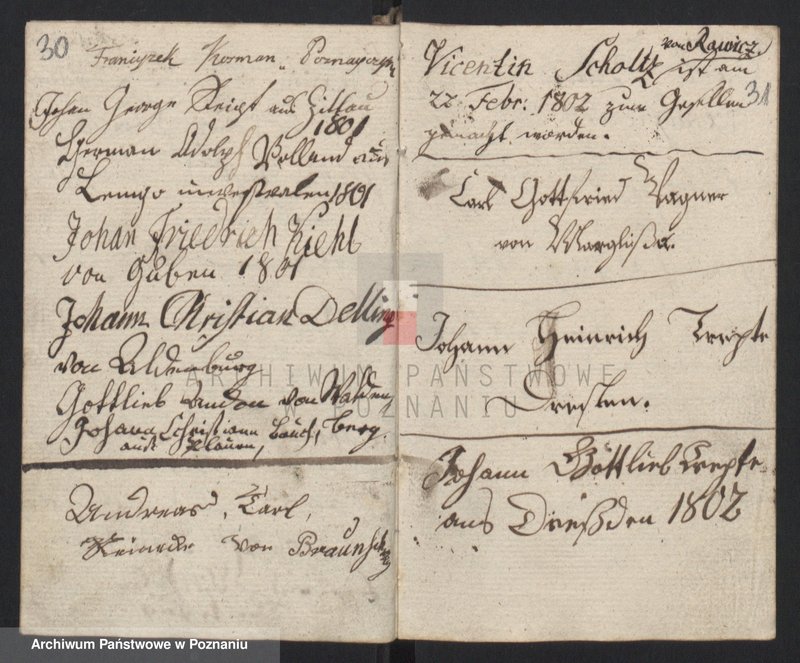 30
Franiszek Korman
Johan George aus Zittau
1801
Herman Adolph Volland aus
Lemgo 1801
Johan Friedrich Kiehl
von Guben 1801
Johann Christian Delling
von Altenburg
Gottlieb Anton von Walden
Johann Christiann Bauch, berg
aus Plauen,
Andreas, Carl,
von Braunsch
von Rawicz.
Vicentin Scholtz ist am
22 Febr: 1802 zum Gesellen 31
gemacht worden.
Carl Gottfried Wagner
von
Johann Heinrich Trepte
Dresden.
Johann Gottlieb Trepte
aus Dreßden 1802
ARCHIWUM PAŃSTWOWE
W POZNANIU
Archiwum Państwowe w Poznaniu